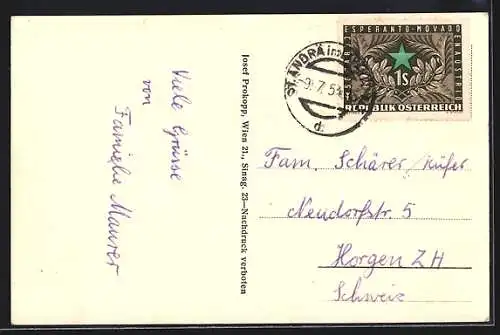 Viele Grüsse
von
Familie Maurer
Josef Prokopp, Wien 21., Sinag. 23—Nachdruck verboten
ST. ANDRÄ im
9. 7. 54
d
ESPERANTO-MOVADO
EN AUSTRIO
1S
REPUBLIK ÖSTERREICH
Fam. Schärer, Küfer
Neudorfstr. 5
Horgen ZH
Schweiz